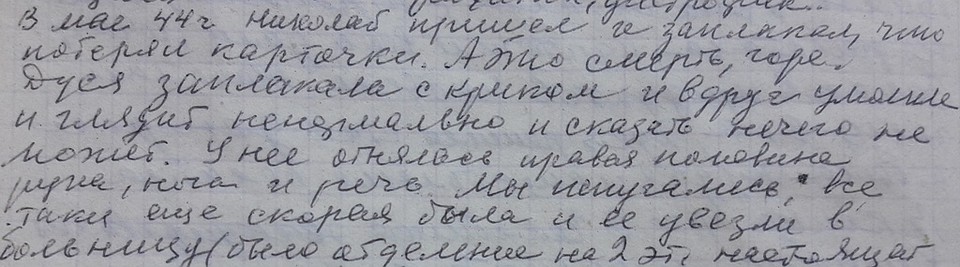 В мае 44 г Николай пришел и заплакал, что
потерял карточки. А это смерть, горе.
Дуся заплакала с криком и вдруг умолкла
и глядит ненормально и сказать нечего не
может. У нее отнялась правая половина
рука, нога и речь. Мы испугались, все
таки еще скорая была и ее увезли в
больницу (было отделение на 2 эт. настоящая